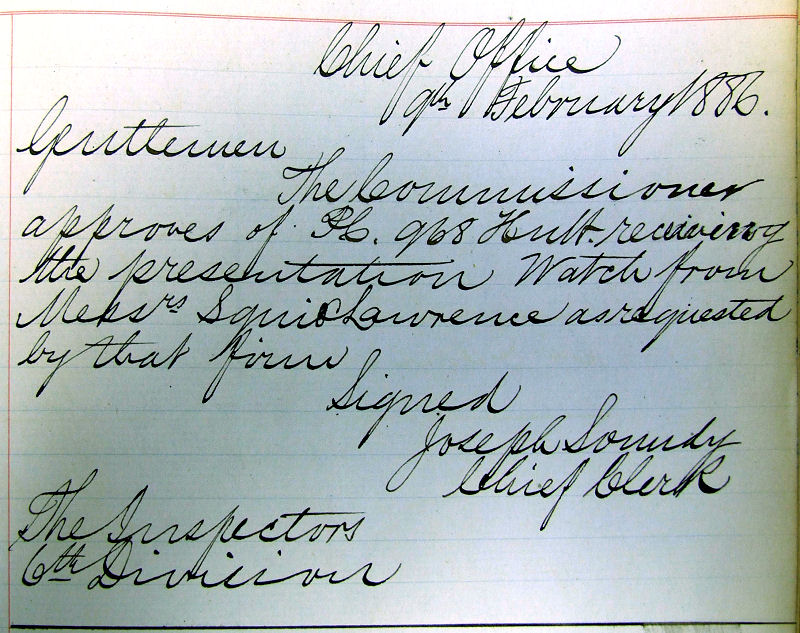 Chief Office
9th February 1886.
Gentlemen
The Commissioner
approves of P.C. 968 Hult. receiving
the presentation Watch from
Messrs Squi & Lawrence as requested
by that firm
Signed
Joseph
Chief Clerk
The Inspectors
6th Division